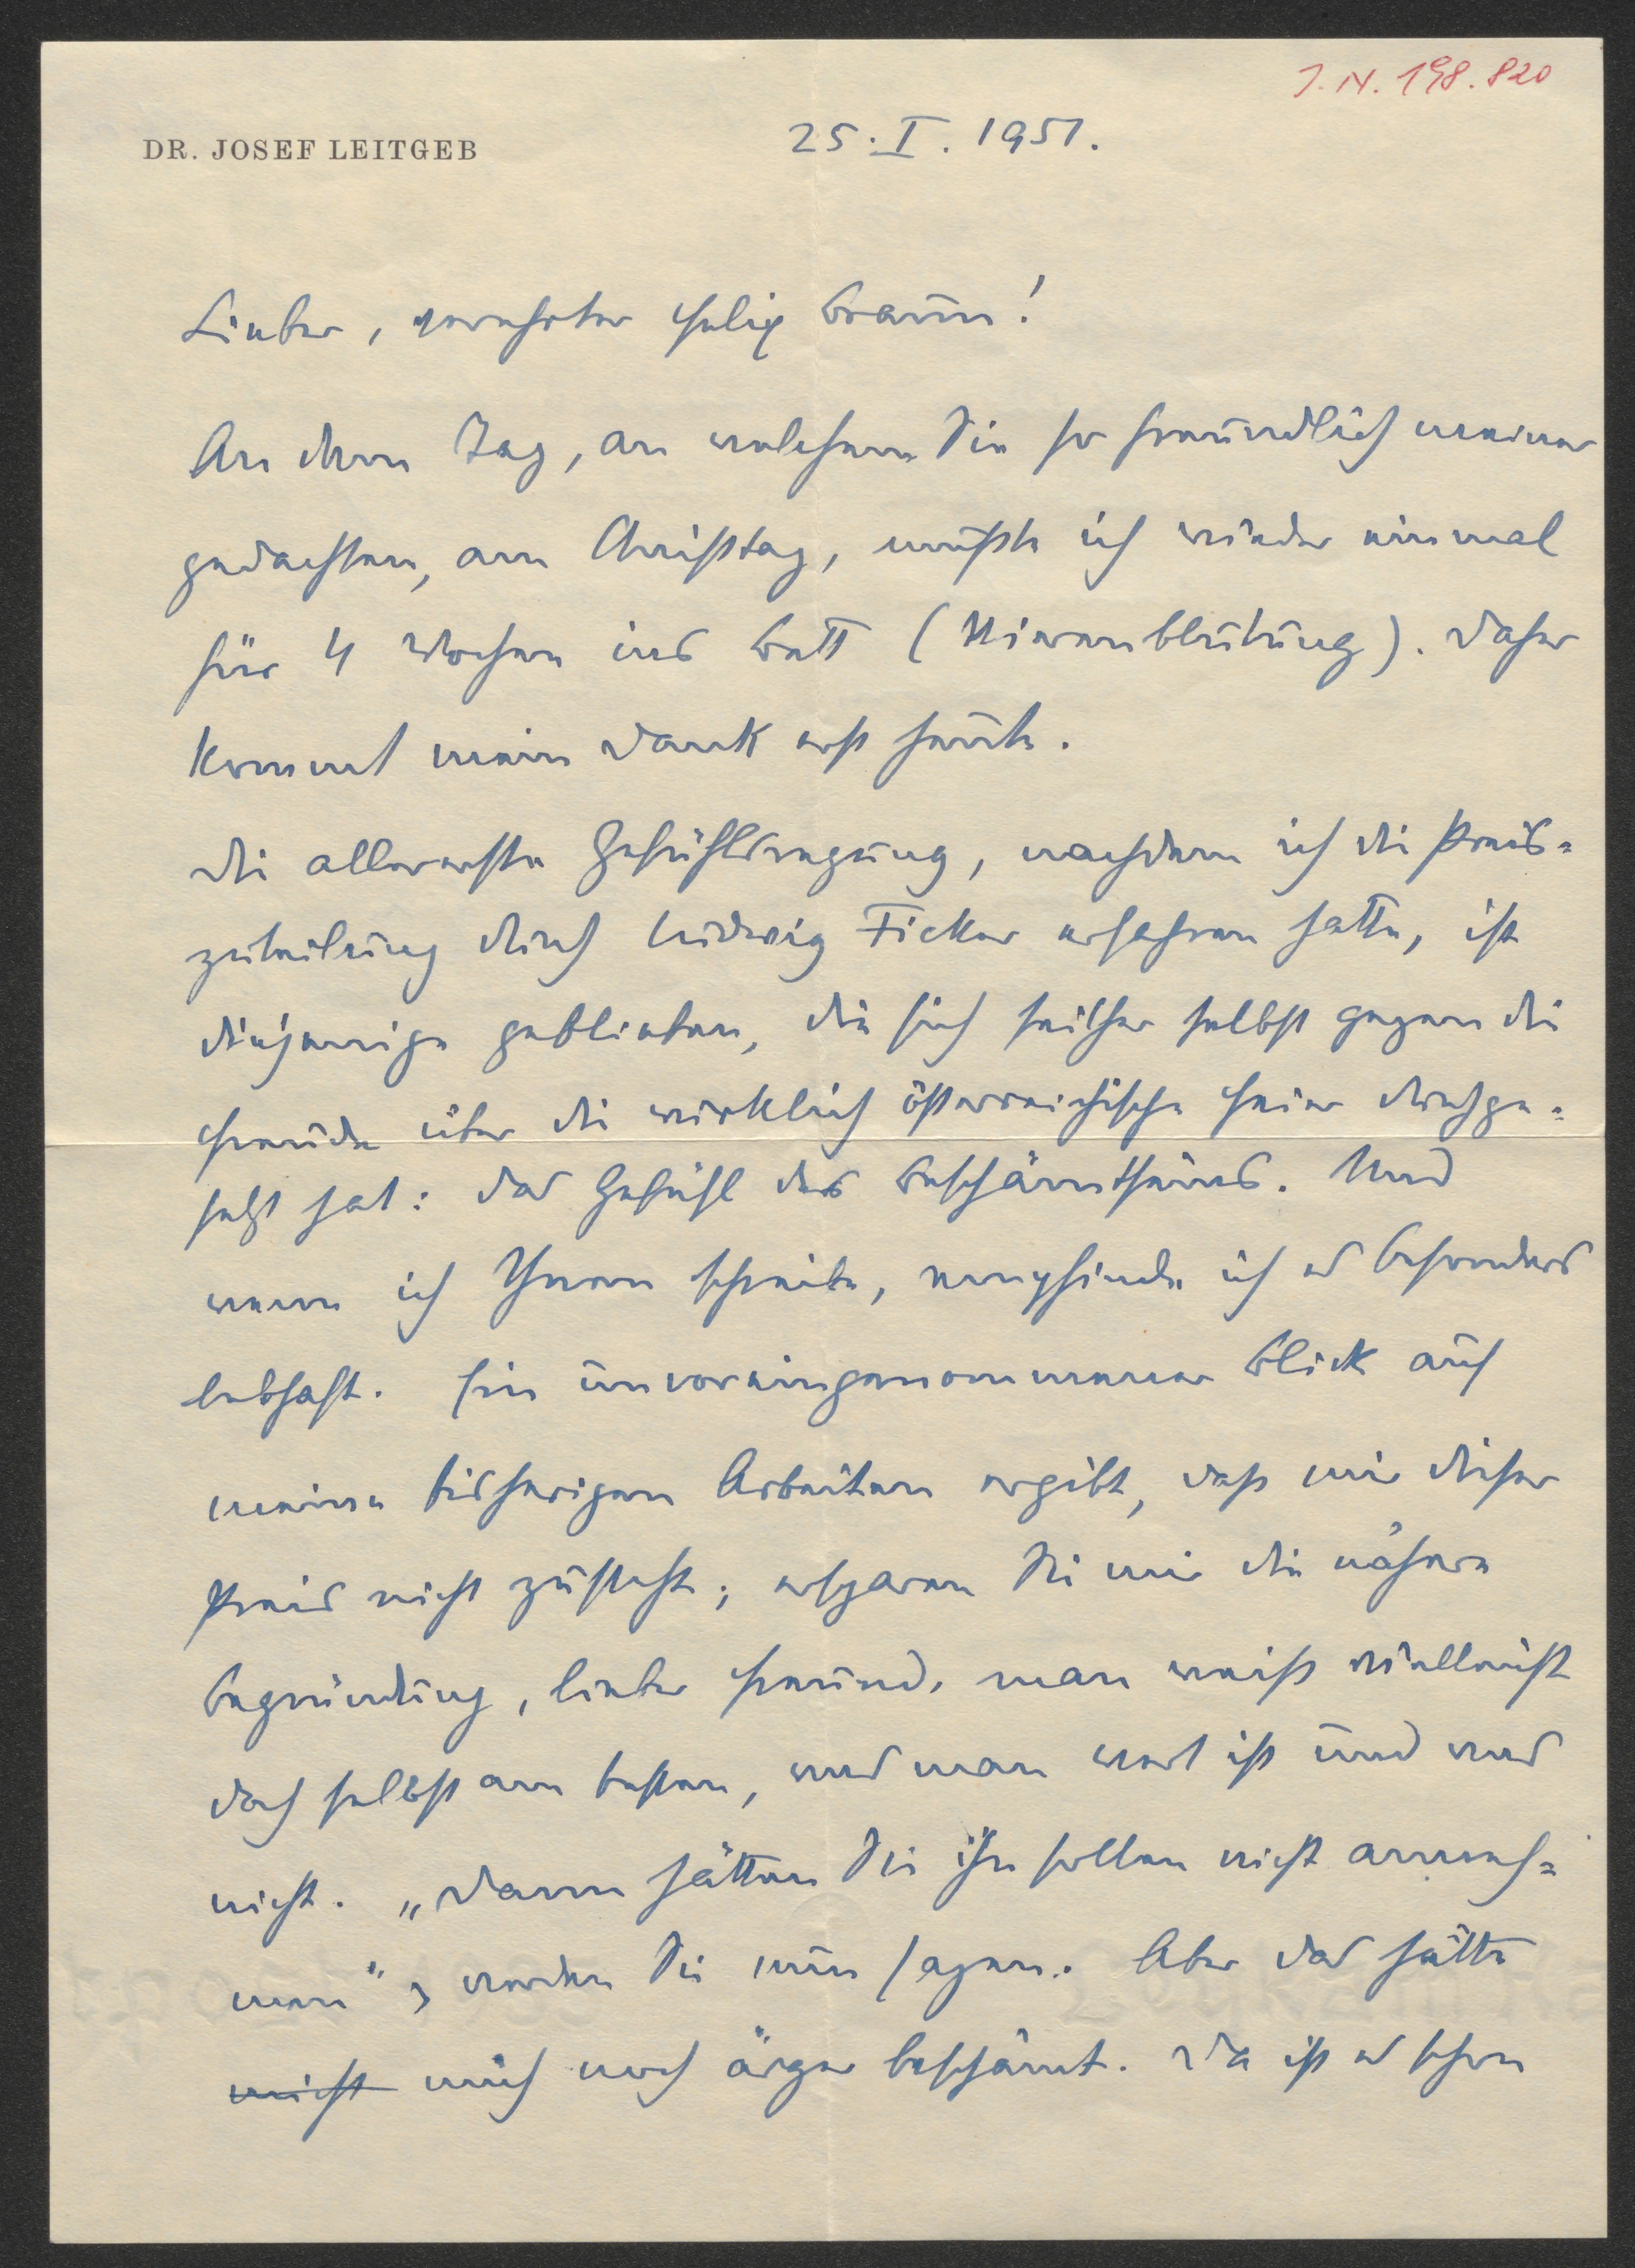 J. N. 198.820
DR. JOSEF LEITGEB
25. I. 1951.
Lieber, verehrter Felix Braun!
An dem Tag, an welchem Sie so freundlich meiner
gedachten, am Christtag, mußte ich wieder einmal
für 4 Wochen ins Bett (Nierenblutung). Daher
kommt mein Dank erst heute.
Die allererste Gefühlsregung, nachdem ich die Preis=
zuteilung durch Ludwig Ficker erfahren hatte, ist
diejenige geblieben, die sich seither selbst gegen die
Freude über die wirklich österreichische Feier durchge=
setzt hat: das Gefühl des Beschämtseins. Und
wenn ich Ihnen schreibe, empfinde ich es besonders
lebhaft. Ein unvoreingenommener Blick auf
meine bisherigen Arbeiten ergibt, daß mir dieser
Preis nicht zusteht; ersparen Sie mir die nähere
Begründung, lieber Freund, man weiß vielleicht
doch selbst am besten, was man wert ist und was
nicht. „Dann hätten Sie ihn sollen nicht anneh=
men", werden Sie nun sagen. Aber das hätte
nicht mich noch ärger beschämt. Da ist es schon